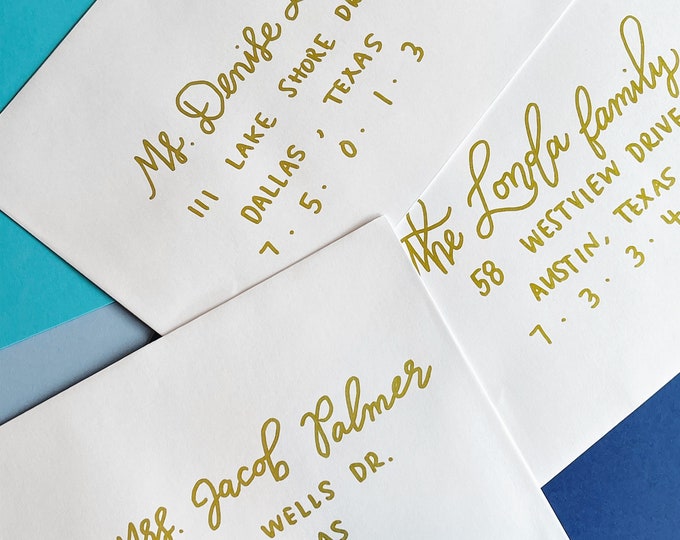 Ms. Denise
111 LAKE SHORE DR
DALLAS, TEXAS
7.5.0.1.3
the Londa family
58 WESTVIEW DRIVE
AUSTIN, TEXAS
7.3.3.4
Mrs. Jacob Palmer
WELLS DR.
AS